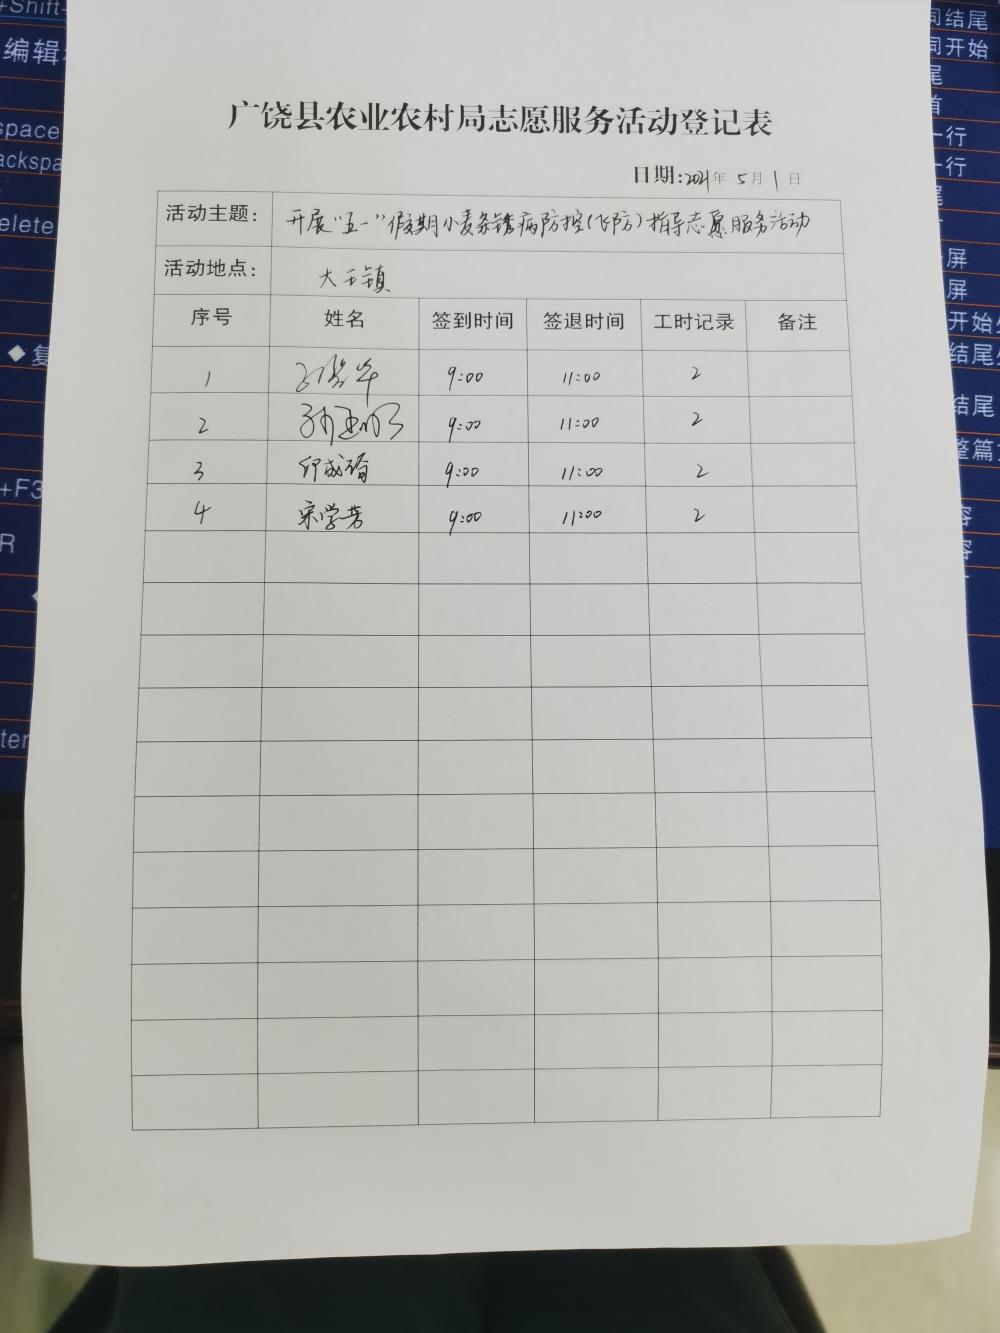 +Shift-
编辑
space
ackspa
elete
◆复
+F3
R
ter
同结尾
同开始
尾
首
一行
一行
尾
屏
屏
开始
结尾
结尾
整篇
广饶县农业农村局志愿服务活动登记表
日期:2021年 5月 1日
活动主题: 开展"五一"假期小麦条锈病防控(飞防)指导志愿服务活动
活动地点: 大王镇
序号 姓名 签到时间 签退时间 工时记录 备注
1 9:00 11:00 2
2 孙亚明 9:00 11:00 2
3 9:00 11:00 2
4 宋学芳 9:00 11:00 2